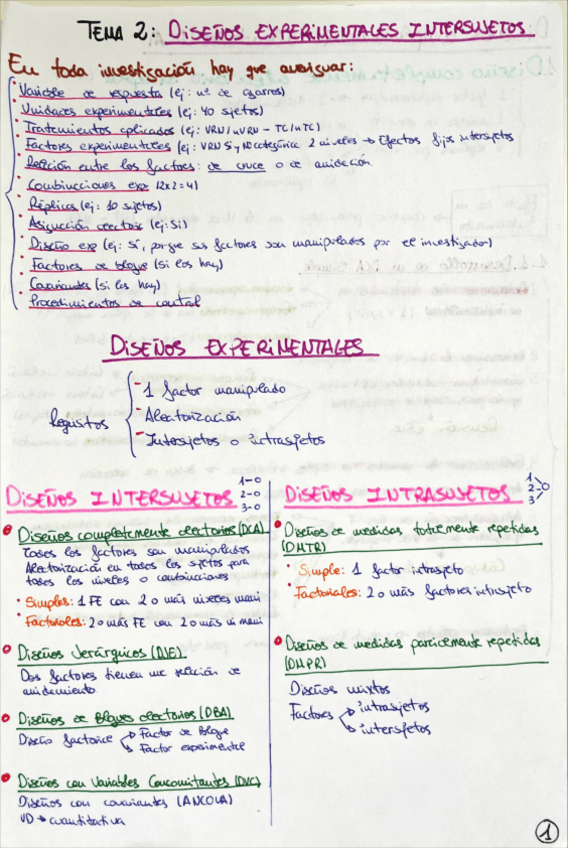 TEMA 2: DISEÑOS EXPERIMENTALES INTERSUJETOS
En toda investigación hay que averiguar:
· Variable de respuesta (ej: nº de cigarros)
· Unidades experimentales (ej: 40 sujetos)
· Tratamientos aplicados (ej: VRN/nVRN - TC/nTC)
· Factores experimentales (ej: VRN SÍ y NO categórica 2 niveles → Efectos fijos intersujetos
· Relación entre los factores: de cruce o de anidación
· Combinaciones exp: (2x2=4)
· Réplicas (ej: 10 sujetos)
· Asignación aleatoria (ej: Sí)
· Diseño exp (ej: Sí, porque sus factores son manipulados por el investigador)
· Factores de bloque (si los hay)
· Covariantes (si los hay)
· Procedimientos de control
DISEÑOS EXPERIMENTALES
Requisitos
- 1 factor manipulado
- Aleatorización
- Intersujetos o intrasujetos
DISEÑOS INTERSUJETOS
1-0
2-0
3-0
• Diseños completamente aleatorios (DCA)
Todos los factores son manipulados
Aleatorización en todos los sujetos para
todos los niveles o combinaciones
· Simples: 1 FE con 2 o más niveles mani
· Factoriales: 2 o más FE con 2 o más ni mani
• Diseños Jerárquicos (DJE)
Dos factores tienen una relación de
anidamiento
• Diseños de Bloques aleatorios (DBA)
Diseño factorial → Factor de Bloque
→ Factor experimental
• Diseños con Variables Concomitantes (DVC)
Diseños con covariantes (ANCOVA)
VD → cuantitativa
DISEÑOS INTRASUJETOS
1
2 0
3
• Diseños de medidas totalmente repetidas
(DMTR)
· Simple: 1 factor intrasujeto
· Factoriales: 2 o más factores intrasujeto
• Diseños de medidas parcialmente repetidas
(DMPR)
Diseños mixtos
Factores → intrasujetos
→ intersujetos
1